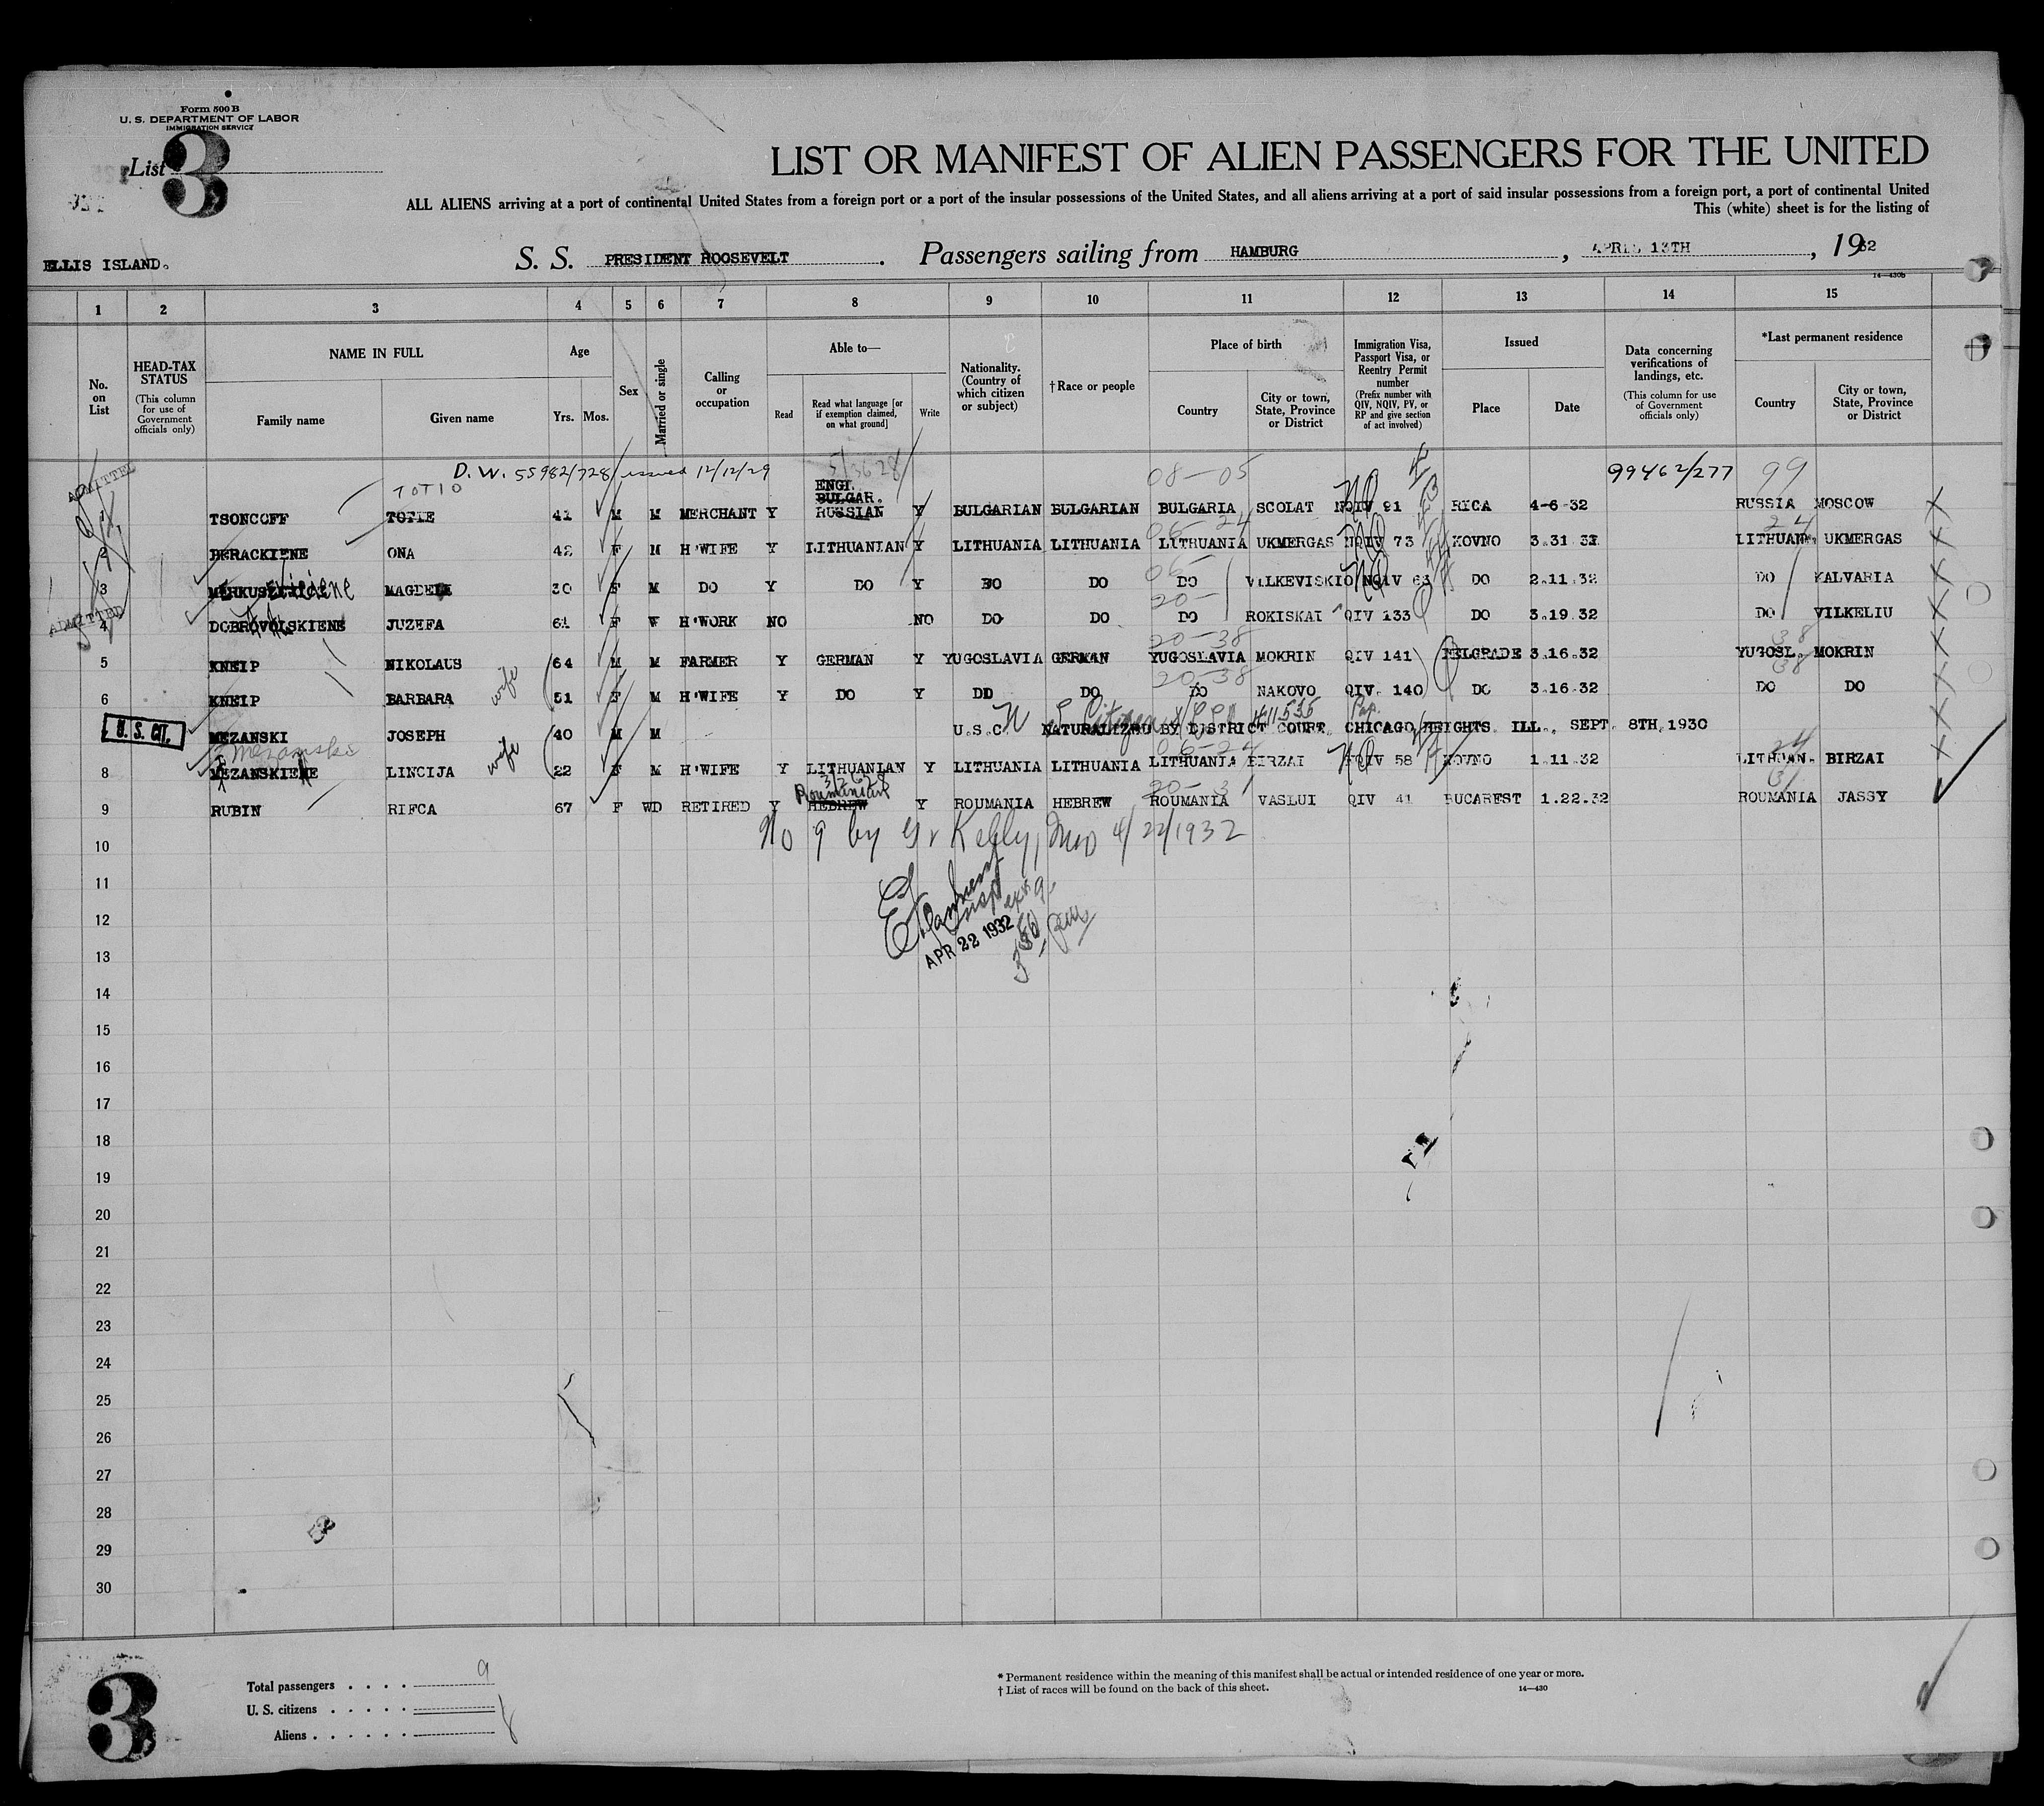 Form 500 B
U. S. DEPARTMENT OF LABOR
IMMIGRATION SERVICE
List 3
LIST OR MANIFEST OF ALIEN PASSENGERS FOR THE UNITED
ALL ALIENS arriving at a port of continental United States from a foreign port or a port of the insular possessions of the United States, and all aliens arriving at a port of said insular possessions from a foreign port, a port of continental United
This (white) sheet is for the listing of
ELLIS ISLAND. S. S. PRESIDENT ROOSEVELT. Passengers sailing from HAMBURG, APRIL 13TH, 1932
14—430b
1 2 3 4 5 6 7 8 9 10 11 12 13 14 15
No. on List
HEAD-TAX STATUS (This column for use of Government officials only)
NAME IN FULL Family name Given name
Age Yrs. Mos.
Sex
Married or single
Calling or occupation
Able to— Read Read what language [or if exemption claimed, on what ground] Write
Nationality. (Country of which citizen or subject)
†Race or people
Place of birth Country City or town, State, Province or District
Immigration Visa, Passport Visa, or Reentry Permit number (Prefix number with QIV, NQIV, PV, or RP and give section of act involved)
Issued Place Date
Data concerning verifications of landings, etc. (This column for use of Government officials only)
*Last permanent residence Country City or town, State, Province or District
ADMITTED
D. W. 55982/728 issued 12/12/29 08-05 99462/277 99
TOTIO ENGL. BULGAR.
TSONCOFF TOTIE 41 M M MERCHANT Y RUSSIAN Y BULGARIAN BULGARIAN BULGARIA SCOLAT NQIV 91 RIGA 4-6-32 RUSSIA MOSCOW
2 BERACKIENE ONA 42 F M H'WIFE Y LITHUANIAN Y LITHUANIA LITHUANIA LITHUANIA UKMERGAS NQIV 73 KOVNO 3.31 32 LITHUAN. UKMERGAS
3 MAGDELE 30 F M DO Y DO Y DO DO DO VILKEVISKIO NQIV 63 DO 2.11.32 DO KALVARIA
ADMITTED
4 DOBROVOLSKIENE JUZEFA 61 F W H'WORK NO NO DO DO DO ROKISKAI QIV 133 DO 3.19.32 DO VILKELIU
20-38 38
5 KNEIP NIKOLAUS 64 M M FARMER Y GERMAN Y YUGOSLAVIA GERMAN YUGOSLAVIA MOKRIN QIV 141 BELGRADE 3.16.32 YUGOSL. MOKRIN
20-38 38
6 KNEIP BARBARA wife 51 F M H'WIFE Y DO Y DO DO DO NAKOVO QIV 140 DO 3.16 32 DO DO
U. S. CIT. MEZANSKI JOSEPH 40 M M U.S.C. NATURALIZED BY DISTRICT COURT CHICAGO HEIGHTS ILL., SEPT. 8TH, 1930
Mezanski
8 MEZANSKIENE LINCIJA wife 22 F M H'WIFE Y LITHUANIAN Y LITHUANIA LITHUANIA LITHUANIA BIRZAI NQIV 58 KOVNO 1.11.32 LITHUAN. BIRZAI
Roumanian
9 RUBIN RIFCA 67 F WD RETIRED Y HEBREW Y ROUMANIA HEBREW ROUMANIA VASLUI QIV 41 BUCAREST 1.22.32 ROUMANIA JASSY
10 No 9 by Kelly, 4/22/1932
11
12
APR 22 1932
13
14
15
16
17
18
19
20
21
22
23
24
25
26
27
28
29
30
3
Total passengers 9
U. S. citizens
Aliens
* Permanent residence within the meaning of this manifest shall be actual or intended residence of one year or more.
† List of races will be found on the back of this sheet.
14—430